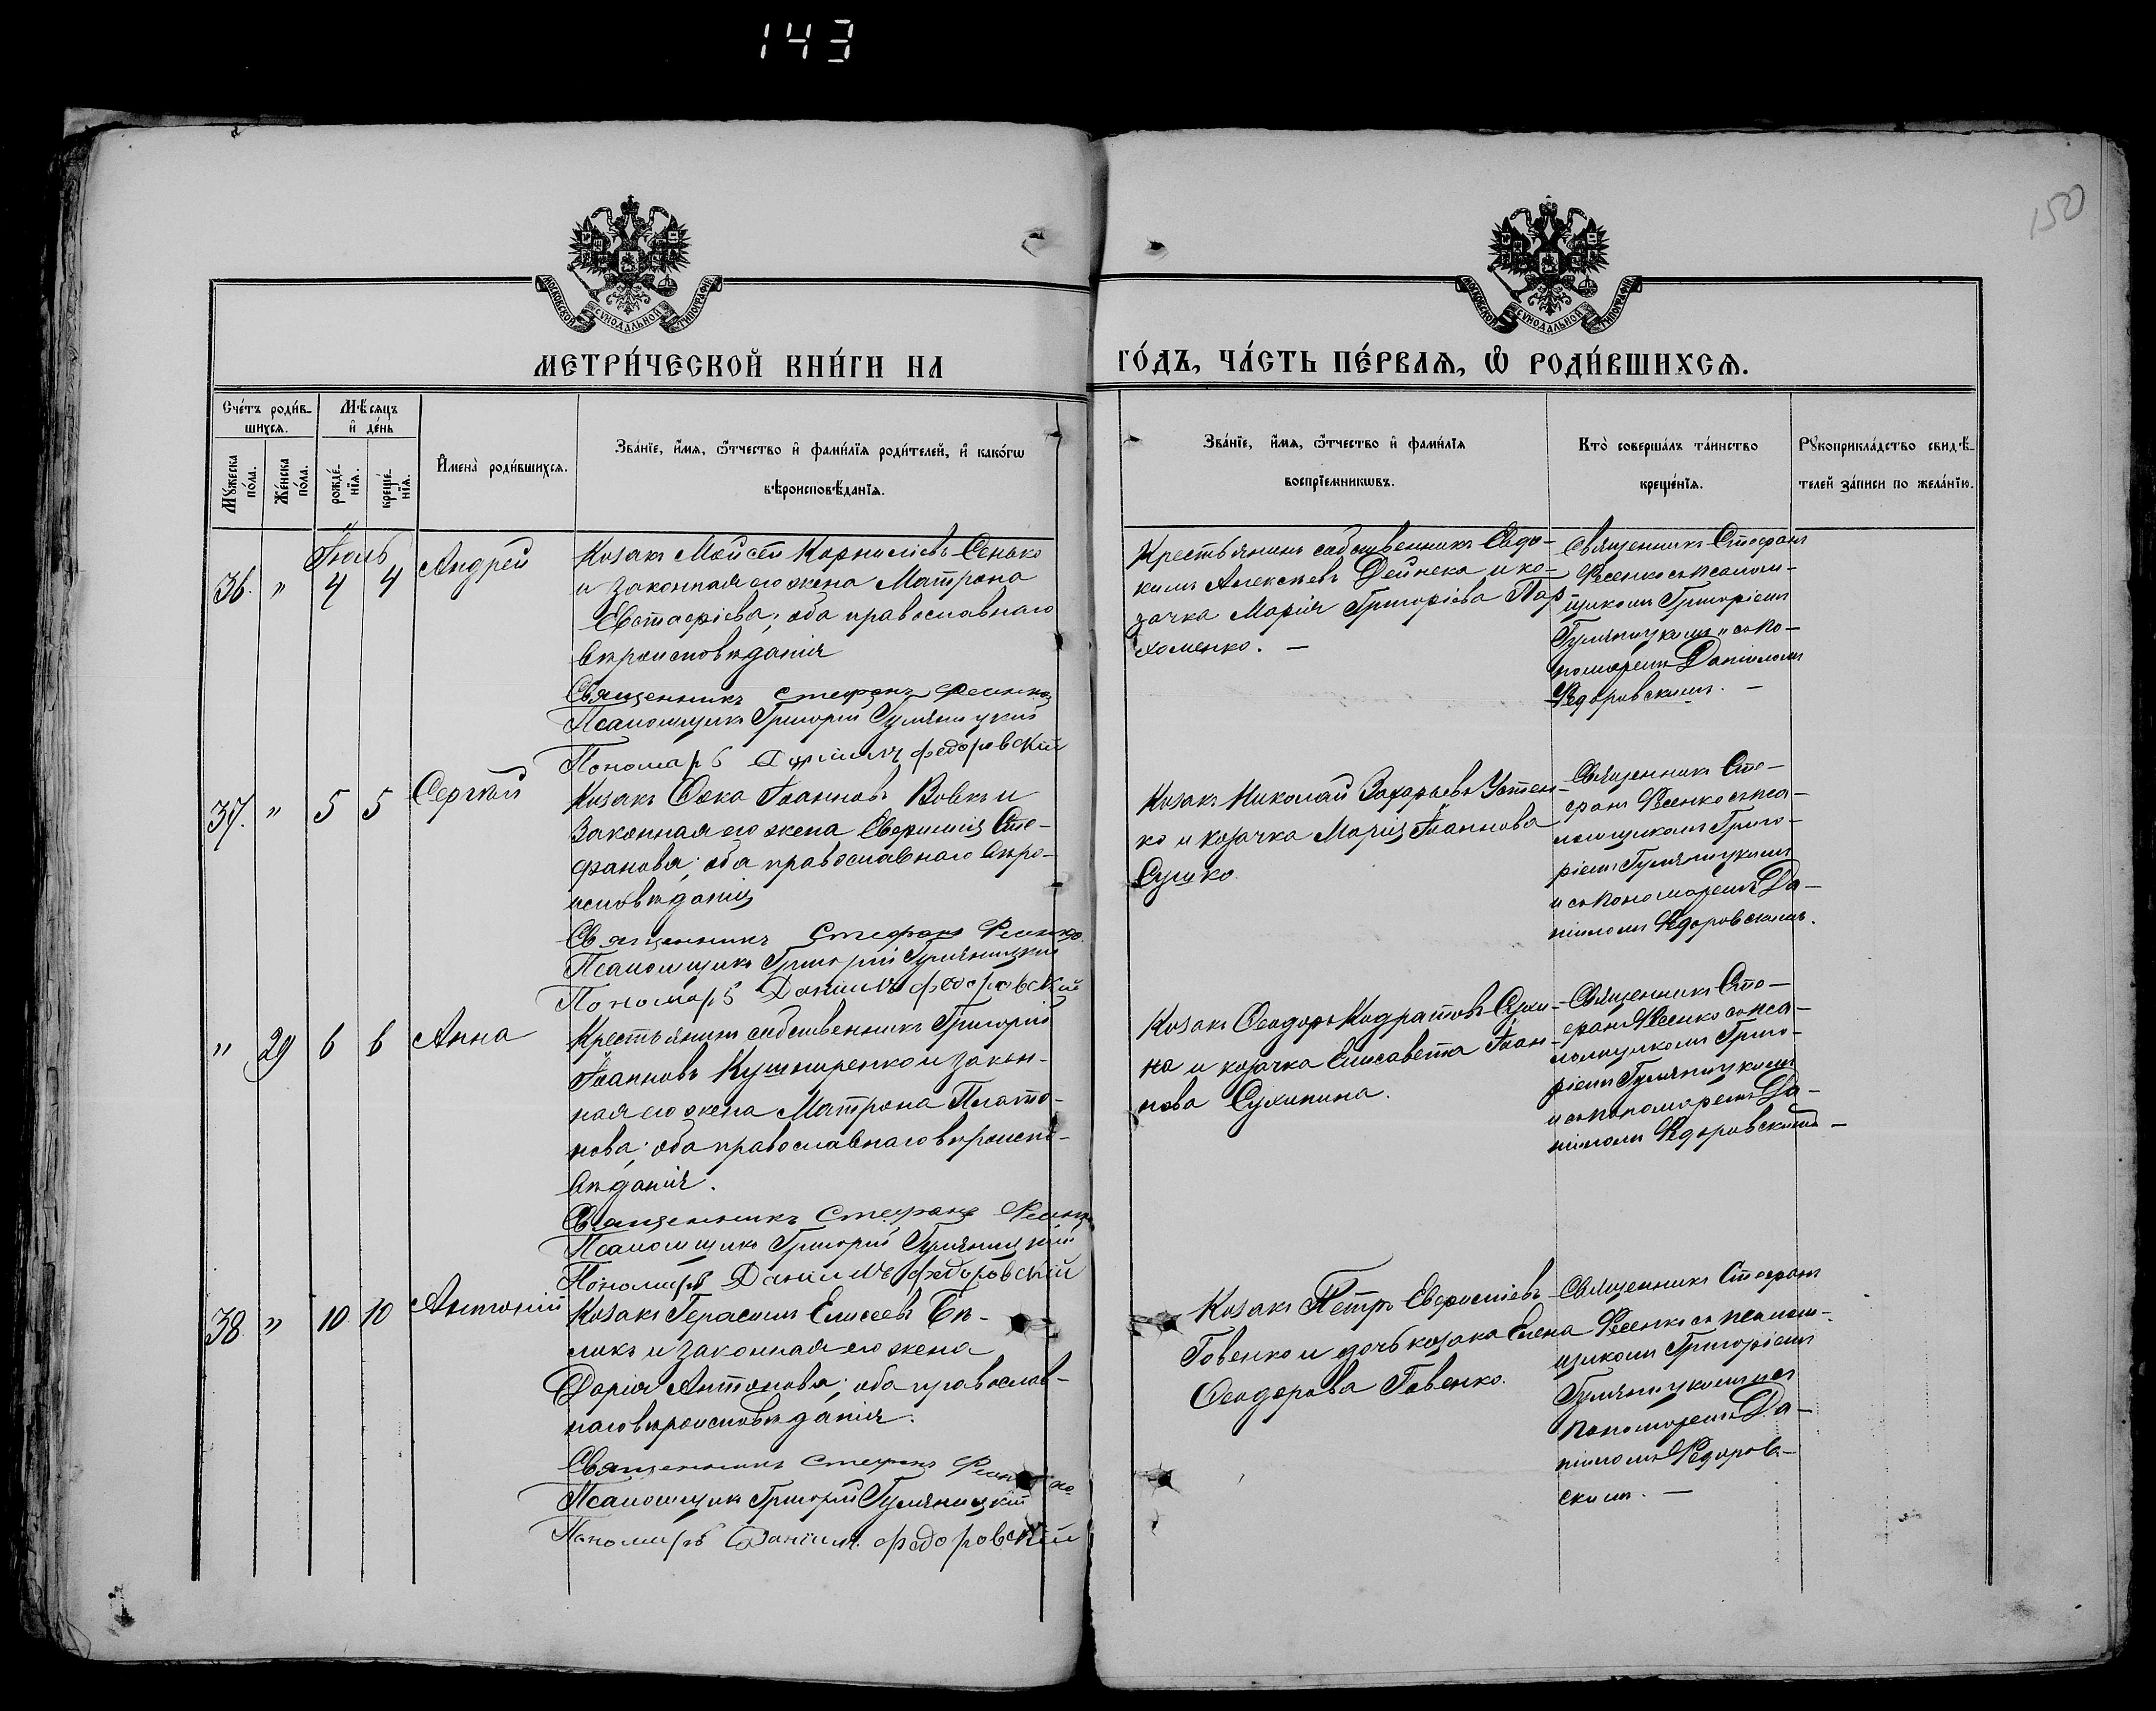 143
150
МОСКОВСКОЙ СѴНОДАЛЬНОЙ ТИПОГРАФІИ
МОСКОВСКОЙ СѴНОДАЛЬНОЙ ТИПОГРАФІИ
МЕТРИ́ЧЕСКОЙ КНИ́ГИ НА
ГО́ДЪ, ЧА́СТЬ ПЕ́РВАѦ, Ѡ҆ РОДИ́ВШИХСѦ.
Сче́тъ роди́в-
шихсѧ.
Мꙋ́жеска по́ла.
Же́нска по́ла.
Мѣ́сѧцъ
и҆ де́нь
рожде́-
нїѧ.
креще́-
нїѧ.
И҆мена̀ роди́вшихсѧ.
Зва́нїе, и҆́мѧ, ѻ҆́тчество и҆ фами́лїѧ роди́телей, и҆ како́гѡ
вѣроисповѣ́данїѧ.
Зва́нїе, и҆́мѧ, ѻ҆́тчество и҆ фами́лїѧ
воспрїе́мникѡвъ.
Кто̀ соверша́лъ та́инство
креще́нїѧ.
Рꙋкоприкла́дство свидѣ́-
телей за́писи по жела́нїю.
Іюль
36. " 4 4 Андрей
Козакъ Мойсей Корниліевъ Сенько
и законная его жена Матрона
Евстафіева; оба православнаго
вѣроисповѣданія
Священникъ Стефанъ Фесенко
Псаломщикъ Григорій Гумяницкій
Пономарь Даніилъ Федоровскій
Крестьянинъ собственникъ Евдо-
кимъ Алексѣевъ Дейнека и ко-
зачка Марія Григоріева Пар
хоменко. —
Священникъ Стефанъ
Фесенко съ псалом-
щикомъ Григоріемъ
Гумяницкимъ и съ по-
номаремъ Даніиломъ
Федоровскимъ. —
37. " 5 5 Сергѣй
Козакъ Ѳока Іоанновъ Вовкъ и
законная его жена Евфимія Сте-
фанова; оба православнаго вѣро-
исповѣданія
Священникъ Стефанъ Фесенко
Псаломщикъ Григорій Гумяницкій
Пономарь Даніилъ Федоровскій
Козакъ Николай Захарьевъ Устен-
ко и козачка Марія Іоаннова
Сушко
Священникъ Сте-
фанъ Фесенко съ пса-
ломщикомъ Григо-
ріемъ Гумяницкимъ
и съ пономаремъ Да-
ніиломъ Федоровскимъ.
" 29 6 6 Анна
Крестьянинъ собственникъ Григорій
Іоанновъ Кушниренко и закон-
ная его жена Матрона Плато-
нова; оба православнаго вѣроиспо-
вѣданія.
Священникъ Стефанъ Фесенко
Псаломщикъ Григорій Гумяницкій
Пономарь Даніилъ Федоровскій
Козакъ Ѳеодоръ Кодратовъ Сухи-
на и козачка Елисавета Іоан-
нова Сухинина.
Священникъ Сте-
фанъ Фесенко съ пса-
ломщикомъ Григо-
ріемъ Гумяницкимъ
и съ пономаремъ Да-
ніиломъ Федоровскимъ —
38. " 10 10 Антоній
Козакъ Герасимъ Елисеевъ Бѣ-
ликъ и законная его жена
Дарія Антонова; оба православ-
наго вѣроисповѣданія.
Священникъ Стефанъ Фесенко
Псаломщикъ Григорій Гумяницкій
Пономарь Даніилъ Федоровскій
Козакъ Петръ Евфиміевъ
Говенко и дочь козака Елена
Ѳеодорова Говенко.
Священникъ Стефанъ
Фесенко съ псалом-
щикомъ Григоріемъ
Гумяницкимъ и съ
пономаремъ Да-
ніиломъ Федоров-
скимъ. —